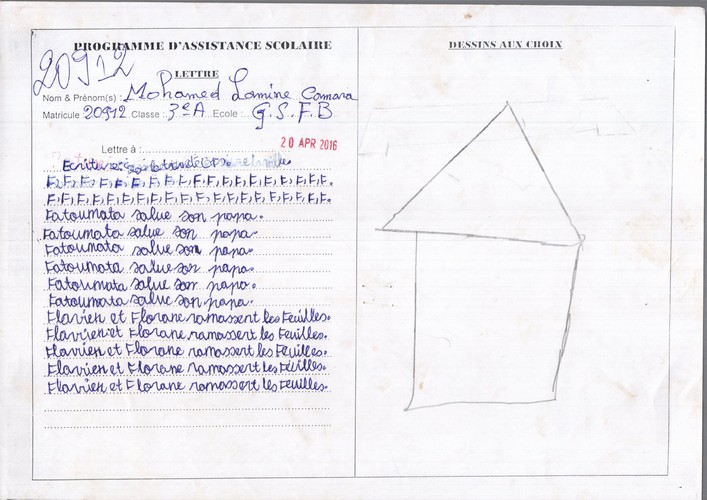 PROGRAMME D'ASSISTANCE SCOLAIRE
20912
LETTRE
Nom & Prénom(s) : Mohamed Lamine Camara
Matricule 20912 Classe : 3eA Ecole : G.S.F.B
Lettre à :
20 APR 2016
Ecrite
F,F,F,F,F,F,F,F,F,F,F,F,F,F,F,F,F,F.
F,F,F,F,F,F,F,F,F,F,F,F,F,F,F,F,F,F.
Fatoumata salue son papa.
Fatoumata salue son papa.
Fatoumata salue son papa.
Fatoumata salue son papa.
Fatoumata salue son papa.
Fatoumata salue son papa.
Flavien et Florane ramassent les Feuilles.
Flavien et Florane ramassent les Feuilles.
Flavien et Florane ramassent les Feuilles.
Flavien et Florane ramassent les Feuilles.
Flavien et Florane ramassent les Feuilles.
DESSINS AUX CHOIX